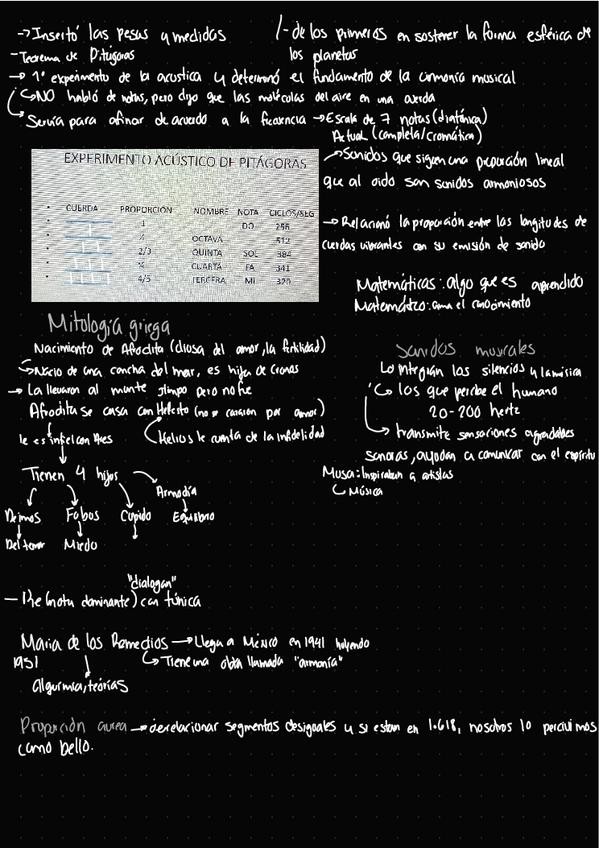 → Insertó las pesas y medidas
/- de los primeros en sostener la forma esférica de
los planetas
- Teorema de Pitágoras
→ 1° experimento de la acustica y determinó el fundamento de la armonia musical
→ NO habló de notas, pero dijo que las moléculas del aire en una cuerda
→ Servia para afinar de acuerdo a la frecuencia → Escala de 7 notas (diatónica)
Actual (completa/cromática)
EXPERIMENTO ACÚSTICO DE PITÁGORAS
CUERDA PROPORCIÓN NOMBRE NOTA CICLOS/SEG
1 DO 256
OCTAVA 512
2/3 QUINTA SOL 384
CUARTA FA 341
4/5 TERCERA MI 320
→ Sonidos que siguen una proporción lineal
que al oido son sonidos armoniosos
→ Relacionó la proporción entre las longitudes de
cuerdas vibrantes con su emisión de sonido
Matemáticas: algo que es aprendido
Matemático: ama el conocimiento
Mitología griega
Nacimiento de Afrodita (diosa del amor, la fertilidad)
→ Nacio de una concha del mar, es hija de Cronos
→ La llevaron al monte olimpo pero no fue
Afrodita se casa con Hefesto (no se casaron por amor)
le es infiel con Ares
Helios le cuenta de la infidelidad
Tienen 4 hijos
Armodía
Deimos Fobos Cupido Equilibrio
Del terror Miedo
Sonidos musicales
Lo integran los silencios y la música
→ los que percibe el humano
20-200 hertz
→ transmite sensaciones agradables
sonoras, ayudan a comunicar con el espíritu
Musa: Inspiraban a artistas
Música
"dialogan"
- Re (nota dominante) con tónica
Maria de los Remedios → Llega a México en 1941 huyendo
1951 → Tiene una obra llamada "armonía"
alquimia, teorías
Proporción aurea → relacionar segmentos desiguales y si estan en 1.618, nosotros lo percivimos
como bello.